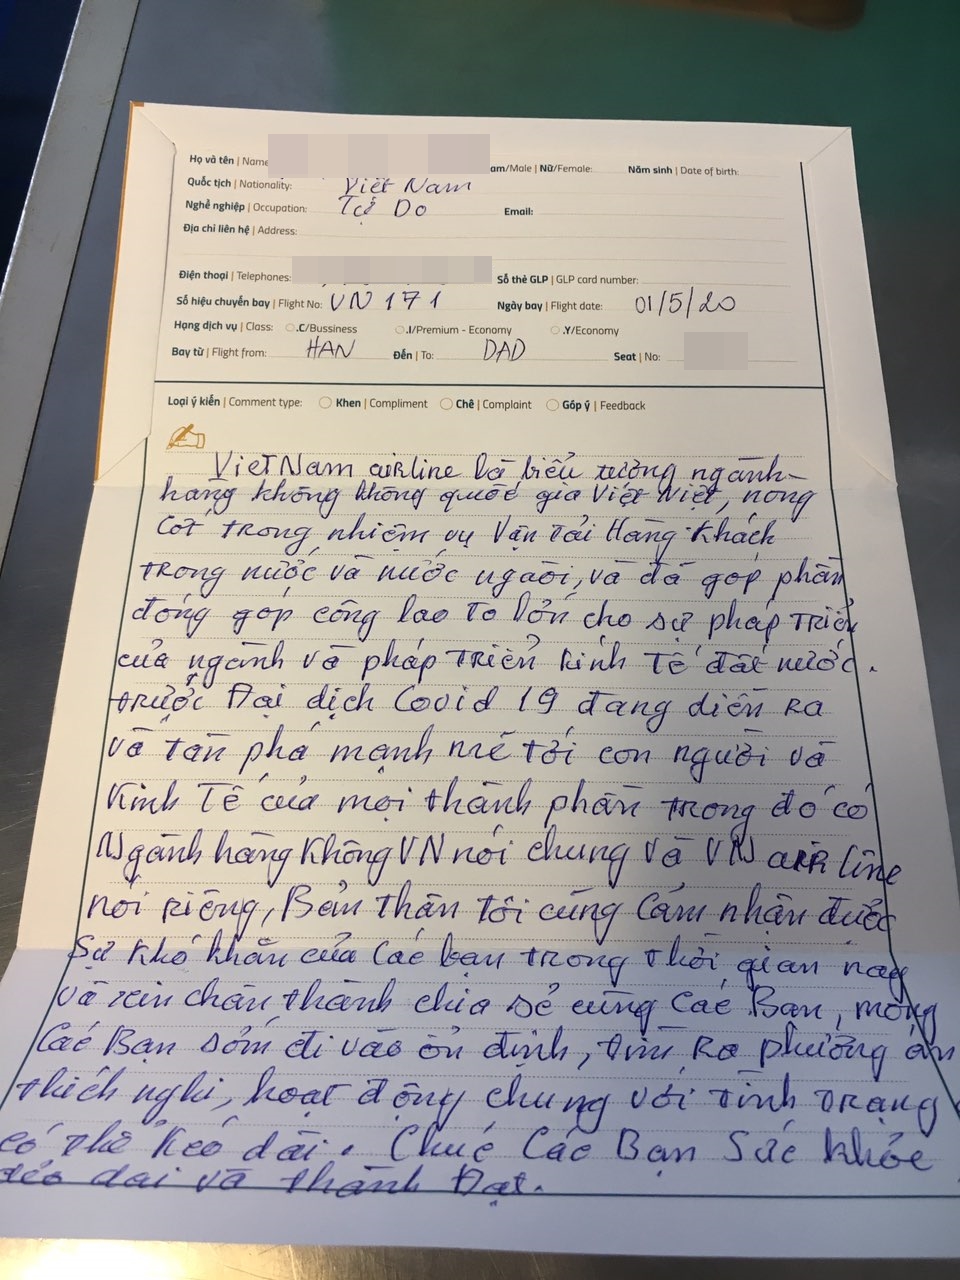 Họ và tên | Name
am/Male | Nữ/Female: Năm sinh | Date of birth:
Quốc tịch | Nationality: Việt Nam
Nghề nghiệp | Occupation: Tự Do Email:
Địa chỉ liên hệ | Address:
Điện thoại | Telephones: Số thẻ GLP | GLP card number:
Số hiệu chuyến bay | Flight No: VN 171 Ngày bay | Flight date: 01/5/20
Hạng dịch vụ | Class: .C/Bussiness .I/Premium - Economy .Y/Economy
Bay từ | Flight from: HAN Đến | To: DAD Seat | No:
Loại ý kiến | Comment type: Khen | Compliment Chê | Complaint Góp ý | Feedback
VietNam airline là biểu tượng ngành
hàng không không quốc gia Việt Việt, nòng
cốt trong nhiệm vụ Vận Tải Hàng Khách
trong nước và nước ngoài, và đã góp phần
đóng góp công lao to lớn cho sự pháp triển
của ngành và pháp triển kinh tế đất nước.
trước Đại dịch Covid 19 đang diễn ra
và tàn phá mạnh mẽ tới con người và
Kinh Tế của mọi thành phần trong đó có
Ngành hàng Không VN nói chung và VN airline
nói riêng, Bản thân tôi cũng Cảm nhận được
Sự khó khăn của các bạn trong thời gian này
và xin chân thành chia sẻ cùng Các Bạn, mong
Các Bạn sớm đi vào ổn định, tìm ra phương án
thích nghi, hoạt động chung với tình trạng
có thể kéo dài. Chúc Các Bạn Sức khỏe
dẻo dai và thành Đạt.